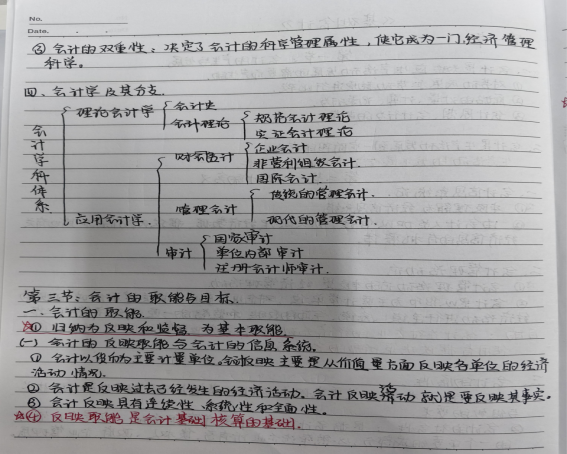 No.
Date.
③ 会计的双重性、决定了会计的科学管理属性，使它成为一门经济管理
科学。
四、会计学及其分支.
会计学科体系
理论会计学
会计史
会计理论
规范会计理论
实证会计理论
应用会计学.
财务会计
企业会计
非营利组织会计.
国际会计
管理会计
传统的管理会计.
现代的管理会计.
审计
国家审计
单位内部审计
注册会计师审计.
第三节：会计的职能与目标.
一.会计的职能.
☆① 归纳为反映和监督 为基本职能
(一) 会计的反映职能与会计的信息系统.
① 会计以货币为主要计量单位。会计反映主要是从价值量方面反映各单位的经济
活动情况.
② 会计是反映过去已经发生的经济活动。会计反映活动 就是要反映其事实。
③ 会计反映具有连续性、系统性和全面性。
☆④ 反映职能是会计基础，核算的基础.